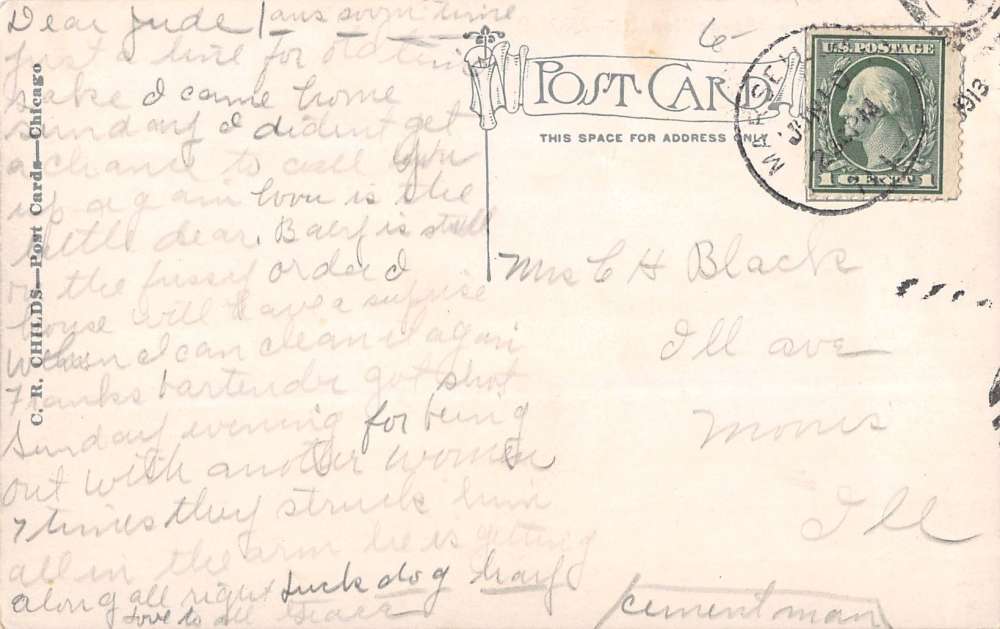 Dear Jude | ans soon time
just a line for old time
sake I came home
sunday I dident get
a chance to call you
up again how is the
little dear. Baby is still
on the fussy order
house will have a
when I can clean it again
Franks bartender got shot
Sunday evening for being
out with another women
7 times they struck him
all in the arm he is getting
along all right luck dog hay
Love to all Grace
C. R. CHILDS—Post Cards—Chicago
6
POST CARD
THIS SPACE FOR ADDRESS ONLY
U.S. POSTAGE
1 CENT 1
1913
Mrs C H Black
Ill ave
Morris
Ill
cement man